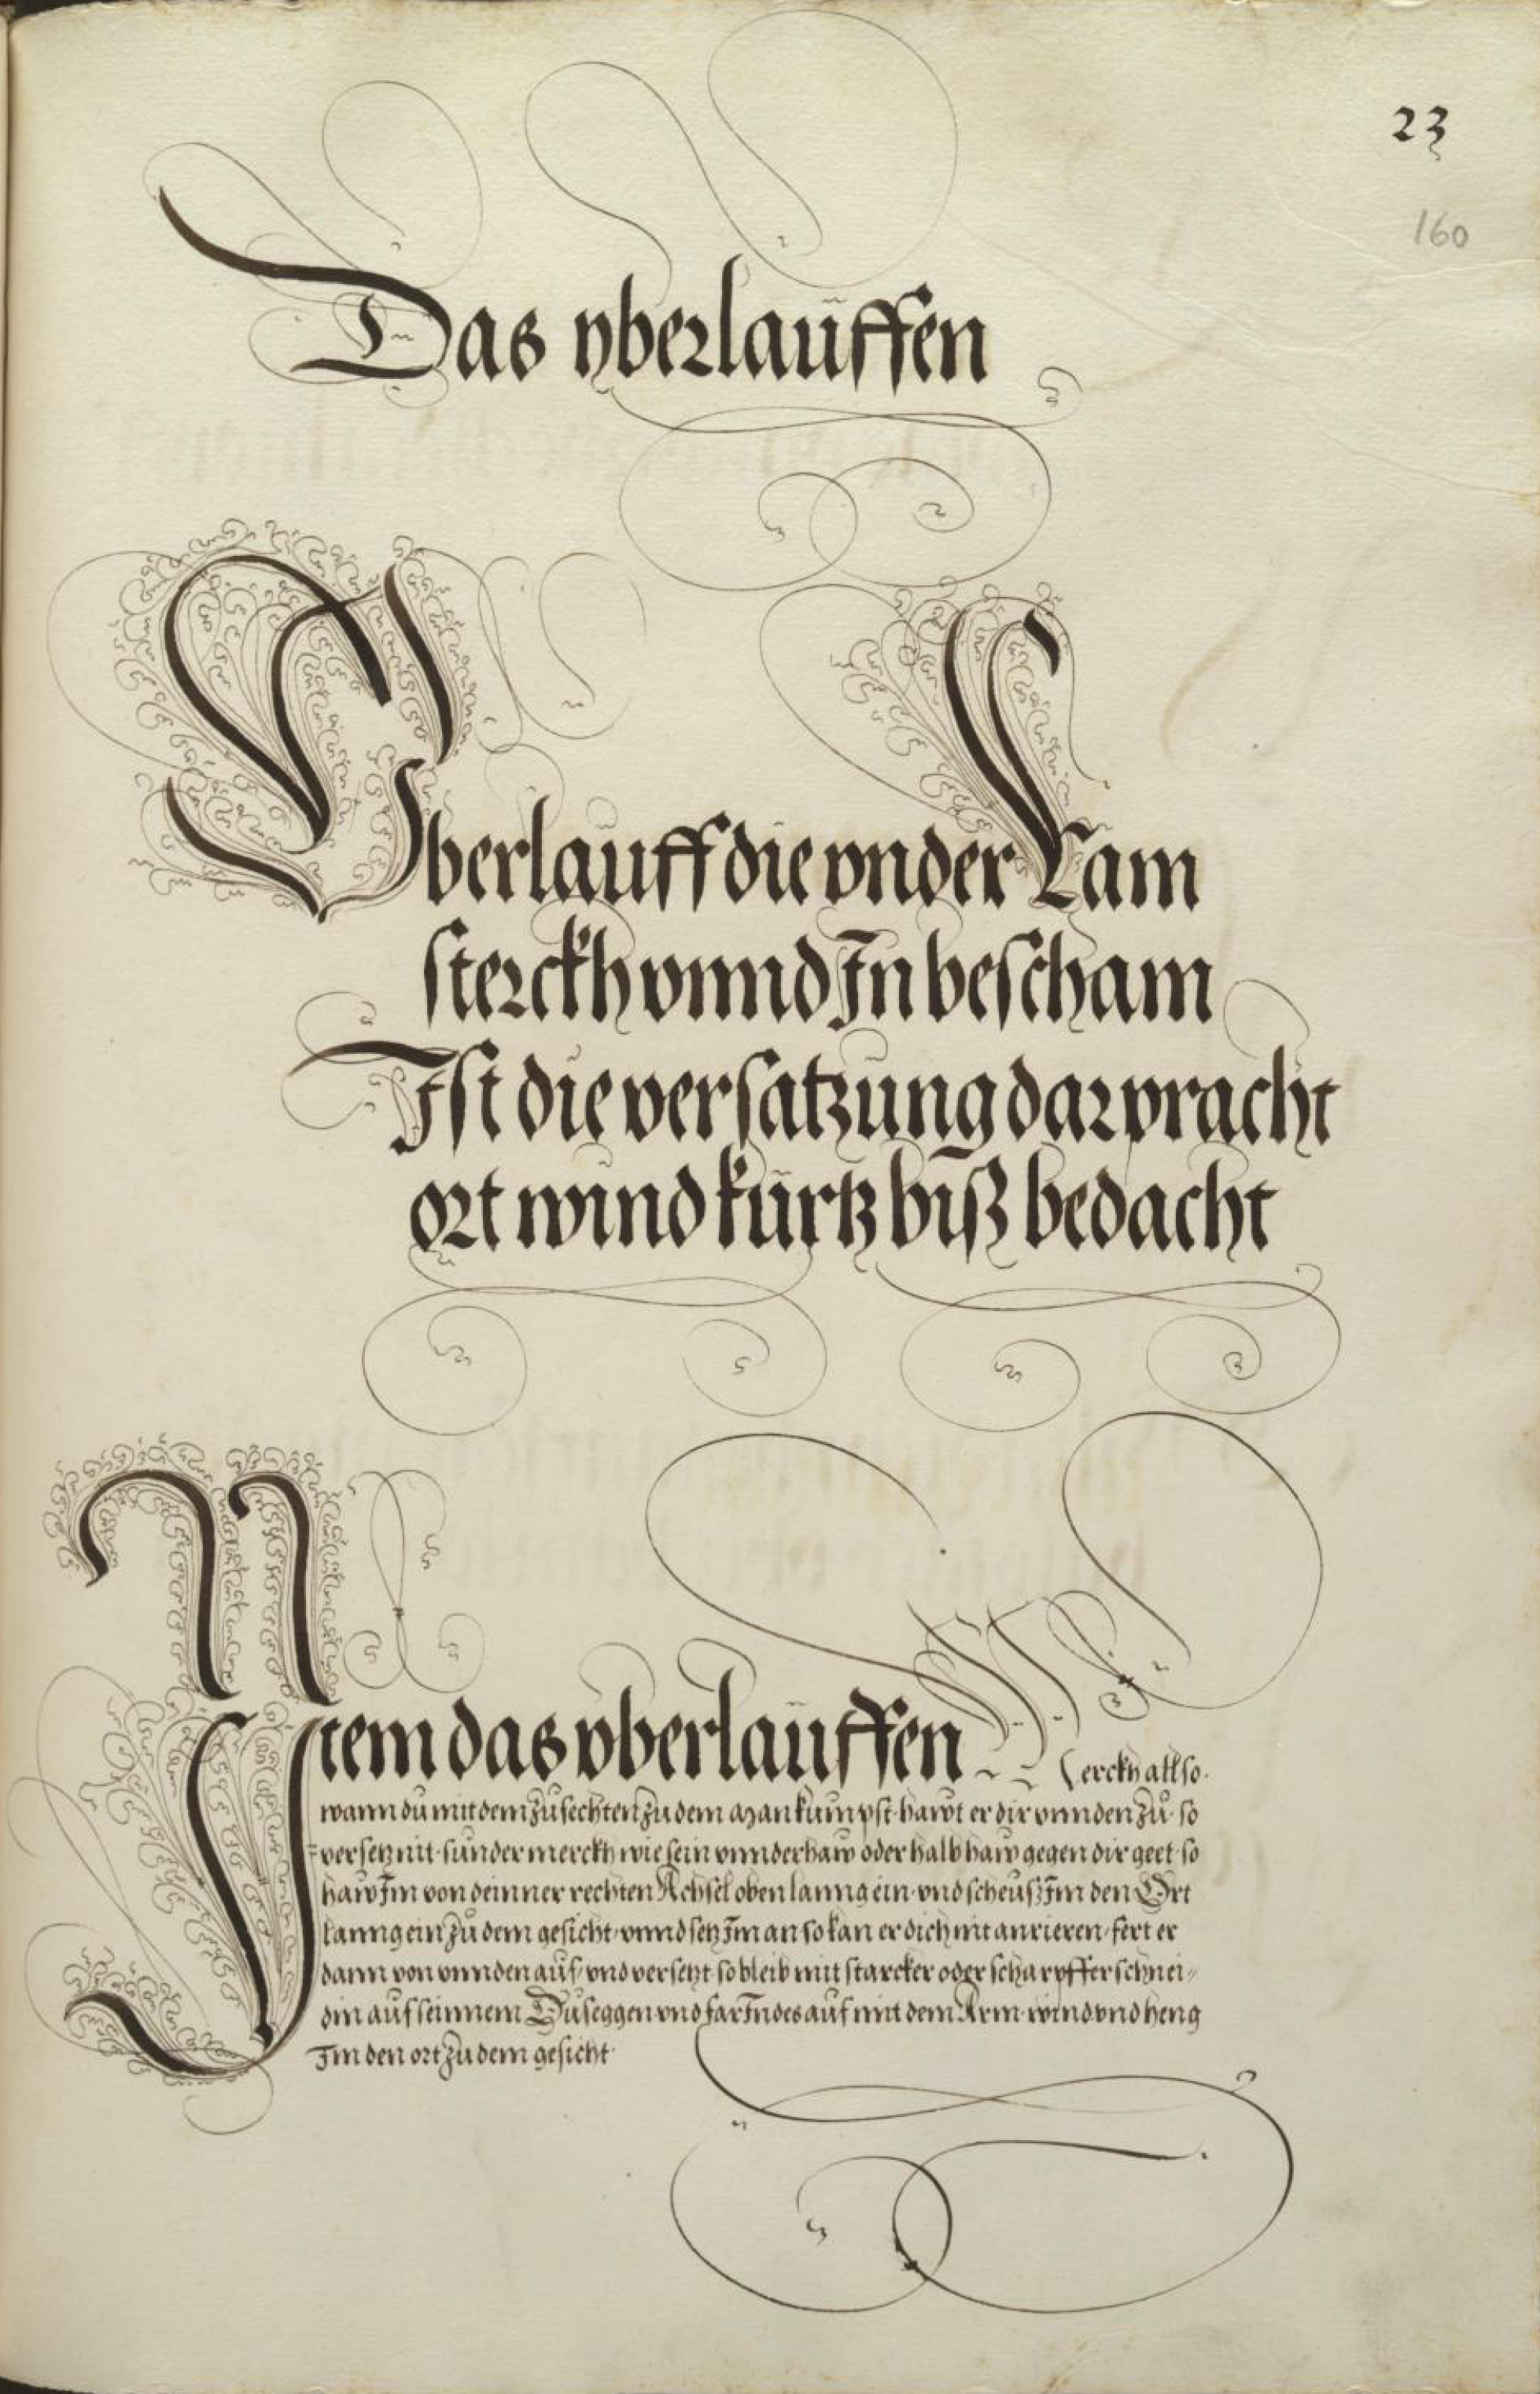 23
160
Das yberlauffen
Vberlauff die vnder Lam
sterckh vnnd In bescham
Ist die versatzung dar pracht
ort wind kurtz biß bedacht
Item das vberlauffen Merckh allso
wann du mit dem zufechten zu dem man kumpst hawt er dir vnnden zu so
versetz nit sunder merckh wie sein vnnderhaw oder halb haw gegen dir geet so
haw Im von deinner rechten Achsel oben lanng ein vnd scheuß Im den Ort
lanng ein zu dem gesicht vnnd setz Im an so kan er dich nit anrieren fert er
dann von vnnden auf vnd versetzt so bleib mit starcker oder scharpffer schnei-
din auf seinnem Duseggen vnd far Indes auf mit dem Arm wind vnd heng
Im den ort zu dem gesicht